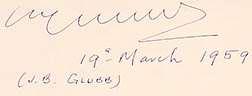 19th March 1959
(J.B. GLUBB)